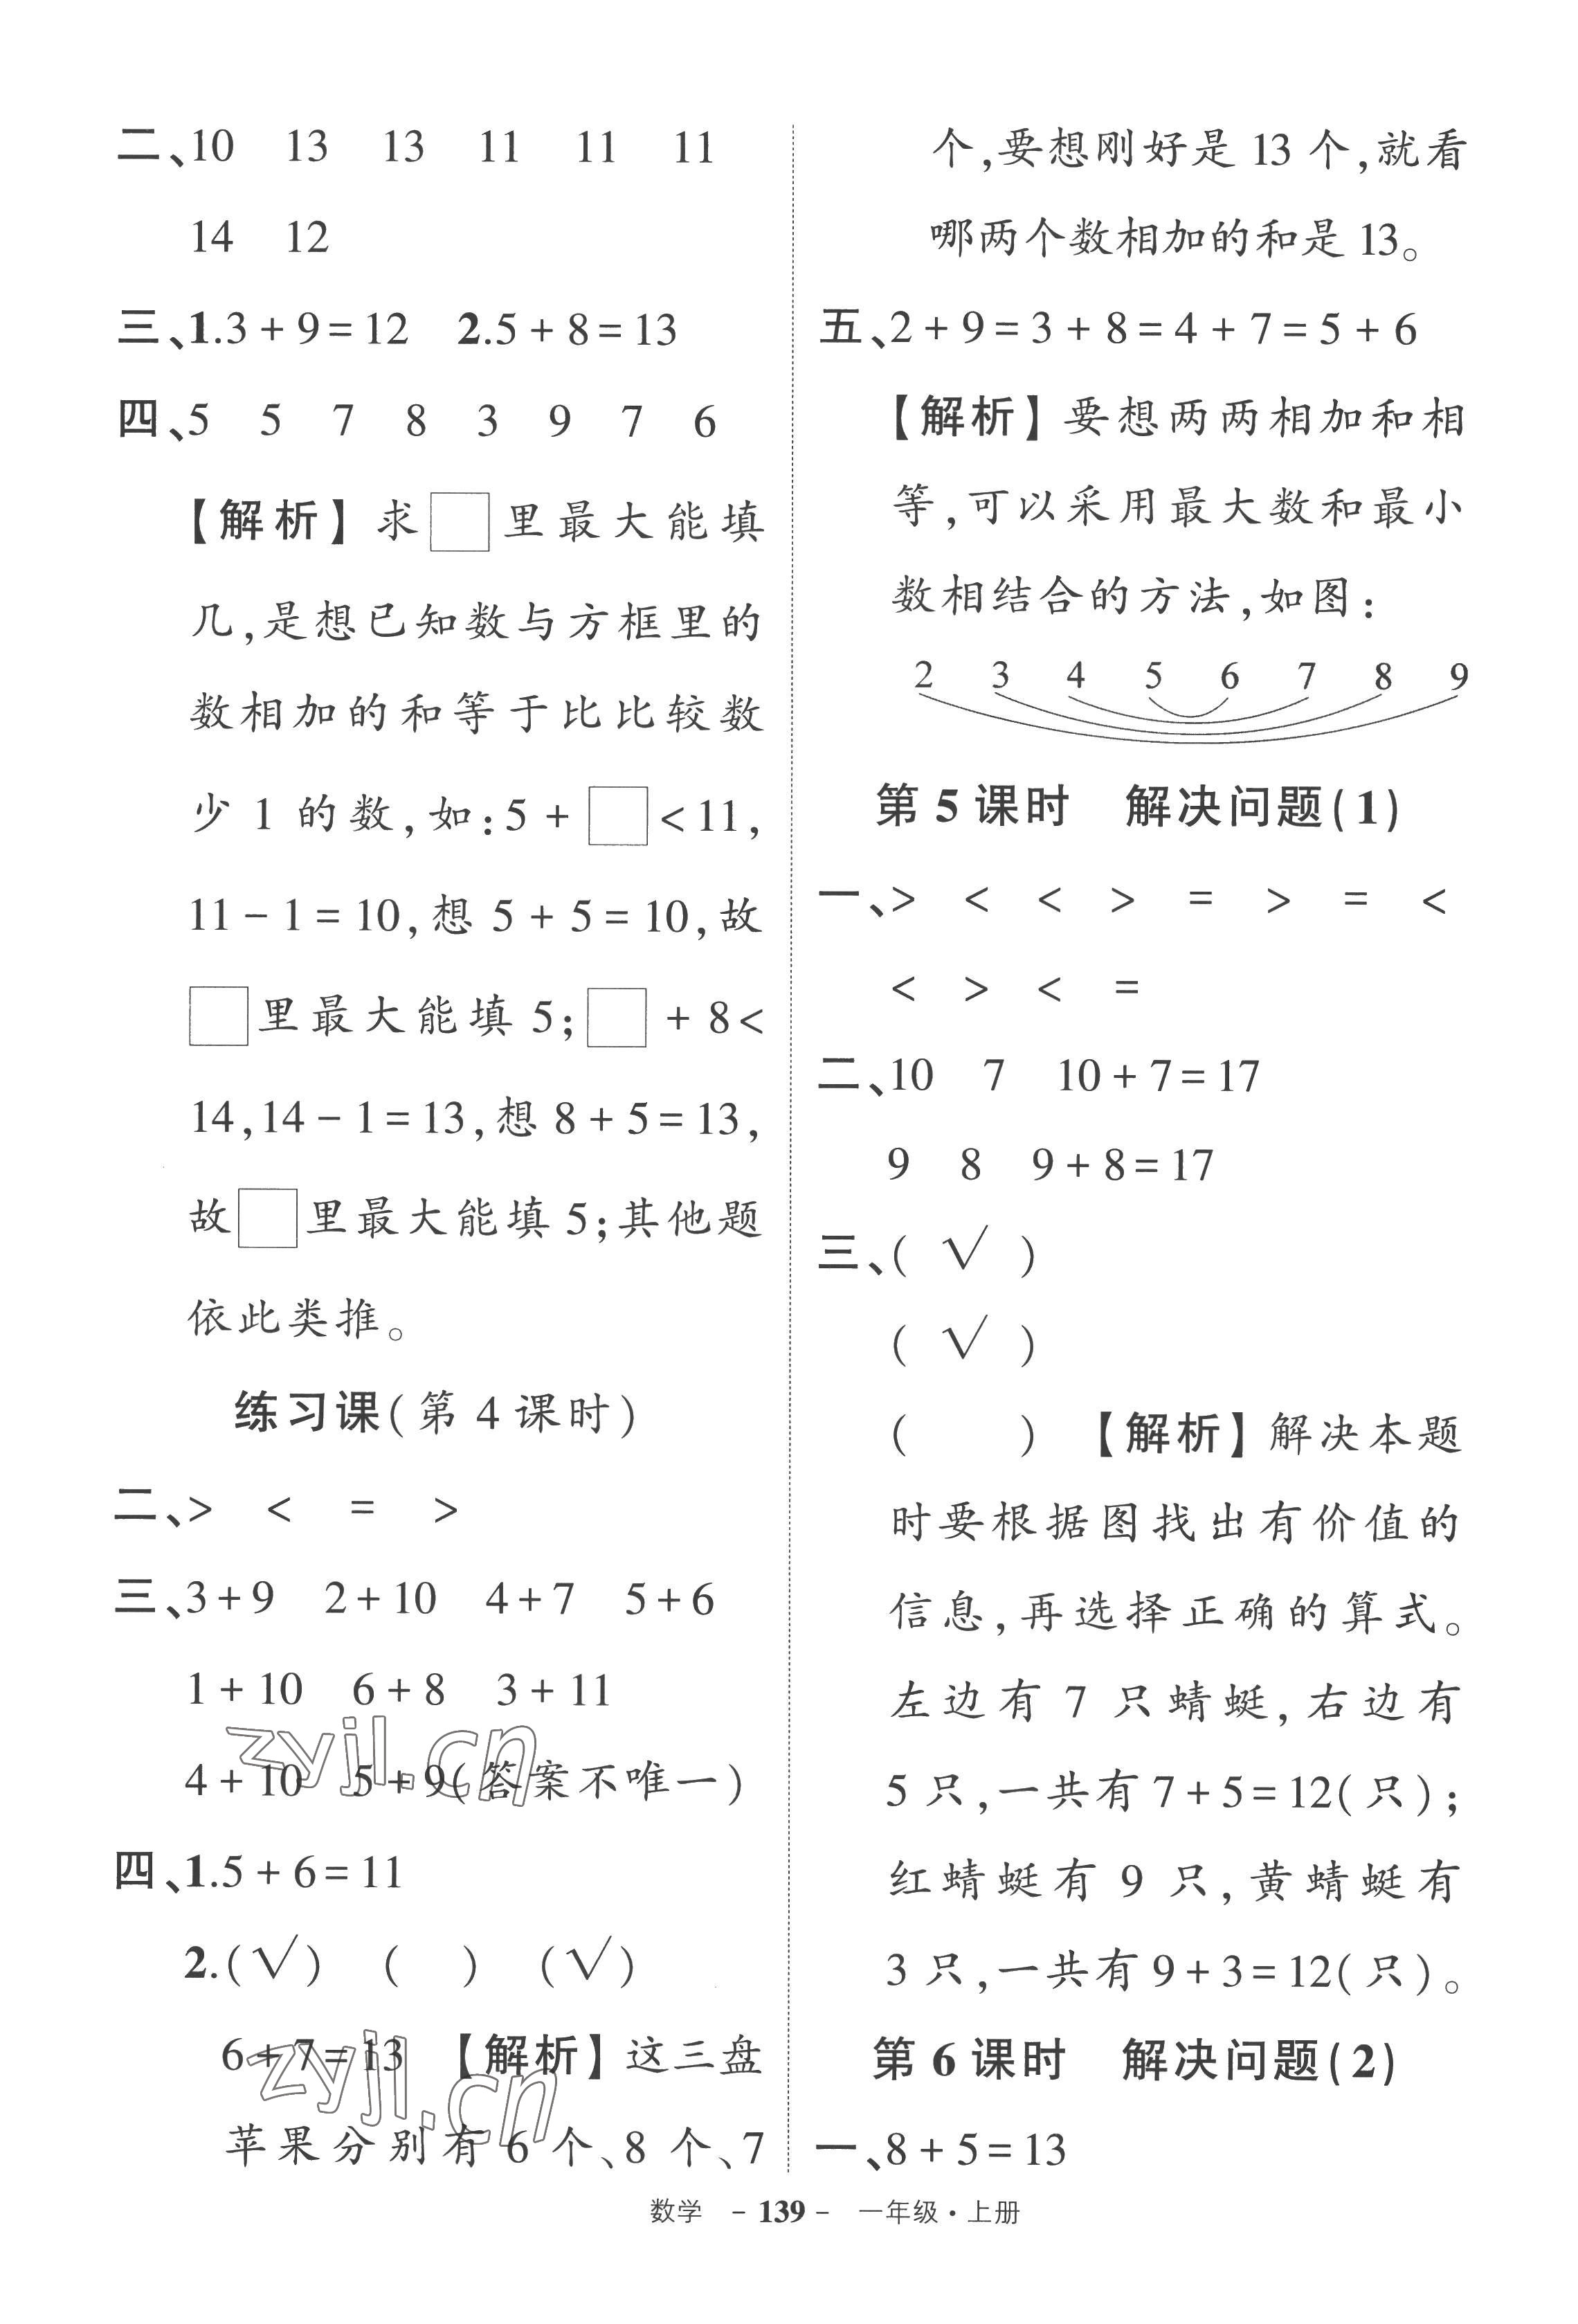 二、10 13 13 11 11 11
14 12
三、1.3+9=12 2.5+8=13
四、5 5 7 8 3 9 7 6
【解析】求□里最大能填
几,是想已知数与方框里的
数相加的和等于比比较数
少 1 的数,如:5+□<11,
11-1=10,想 5+5=10,故
□里最大能填 5;□+8<
14,14-1=13,想 8+5=13,
故□里最大能填 5;其他题
依此类推。
练习课(第 4 课时)
二、> < = >
三、3+9 2+10 4+7 5+6
1+10 6+8 3+11
4+10 5+9(答案不唯一)
四、1.5+6=11
2.(√) ( ) (√)
6+7=13 【解析】这三盘
苹果分别有 6 个、8 个、7
个,要想刚好是 13 个,就看
哪两个数相加的和是 13。
五、2+9=3+8=4+7=5+6
【解析】要想两两相加和相
等,可以采用最大数和最小
数相结合的方法,如图:
2 3 4 5 6 7 8 9
第 5 课时 解决问题(1)
一、> < < > = > = <
< > < =
二、10 7 10+7=17
9 8 9+8=17
三、( √ )
( √ )
( ) 【解析】解决本题
时要根据图找出有价值的
信息,再选择正确的算式。
左边有 7 只蜻蜓,右边有
5 只,一共有 7+5=12(只);
红蜻蜓有 9 只,黄蜻蜓有
3 只,一共有 9+3=12(只)。
第 6 课时 解决问题(2)
一、8+5=13
数学 -139- 一年级·上册
zyjl.cn
zyjl.cn